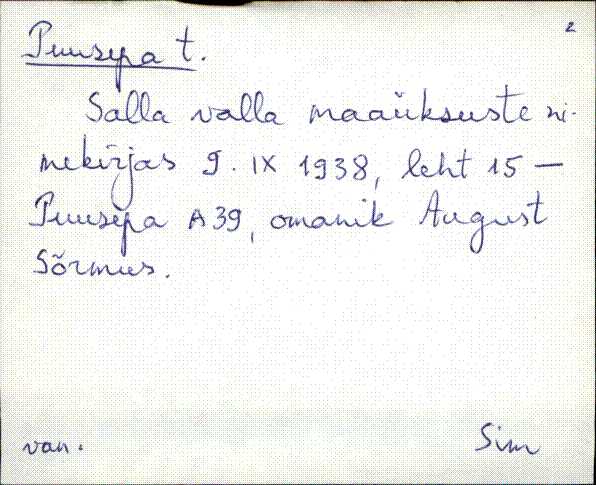 2
Puusepa t.
Salla valla maaüksuste ni-
mekirjas 9. IX 1938, leht 15 —
Puusepa A39, omanik August
Sõrmus.
van. Sim